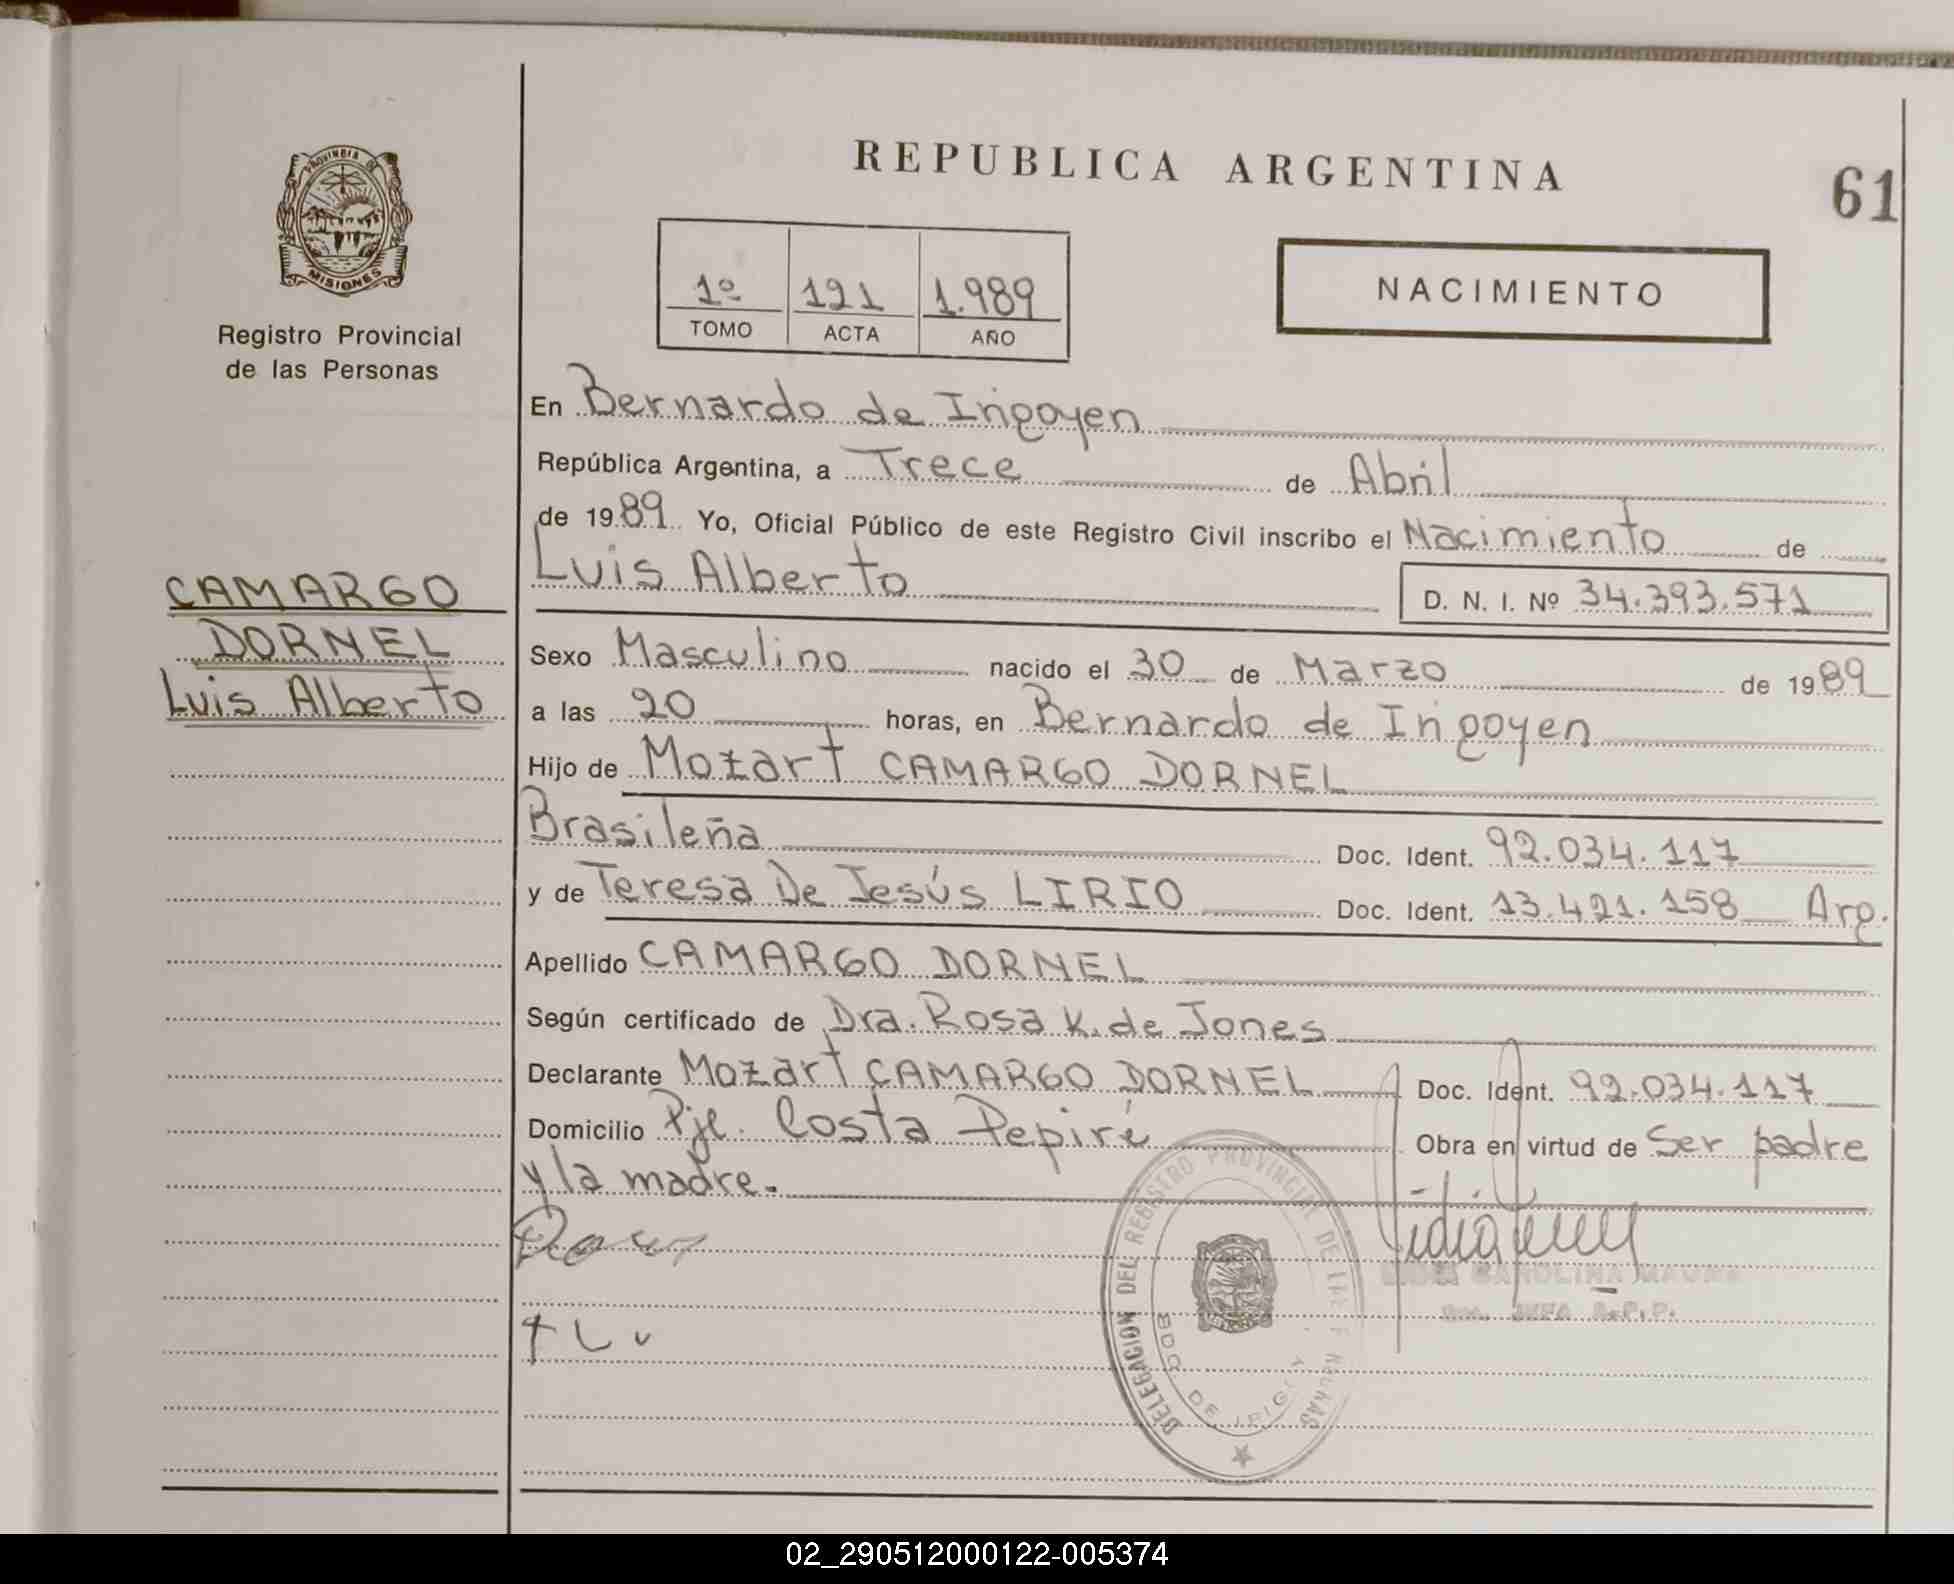 PROVINCIA DE
MISIONES
Registro Provincial
de las Personas
CAMARGO
DORNEL
Luis Alberto
REPUBLICA ARGENTINA
61
1º 121 1.989
TOMO ACTA AÑO
NACIMIENTO
En Bernardo de Irigoyen
República Argentina, a Trece de Abril
de 1989 Yo, Oficial Público de este Registro Civil inscribo el Nacimiento de
Luis Alberto
D. N. I. Nº 34.393.571
Sexo Masculino nacido el 30 de Marzo de 1989
a las 20 horas, en Bernardo de Irigoyen
Hijo de Mozart CAMARGO DORNEL
Brasileña Doc. Ident. 92.034.117
y de Teresa De Jesús LIRIO Doc. Ident. 13.421.158 Arg.
Apellido CAMARGO DORNEL
Según certificado de Dra. Rosa K. de Jones
Declarante Mozart CAMARGO DORNEL Doc. Ident. 92.034.117
Domicilio Pje. Costa Pepirí Obra en virtud de Ser padre
y la madre.
DELEGACION DEL REGISTRO PROVINCIAL DE LAS PERSONAS
BDO. DE IRIGOYEN
CAROLINA
JEFA R.P.P.
02_290512000122-005374